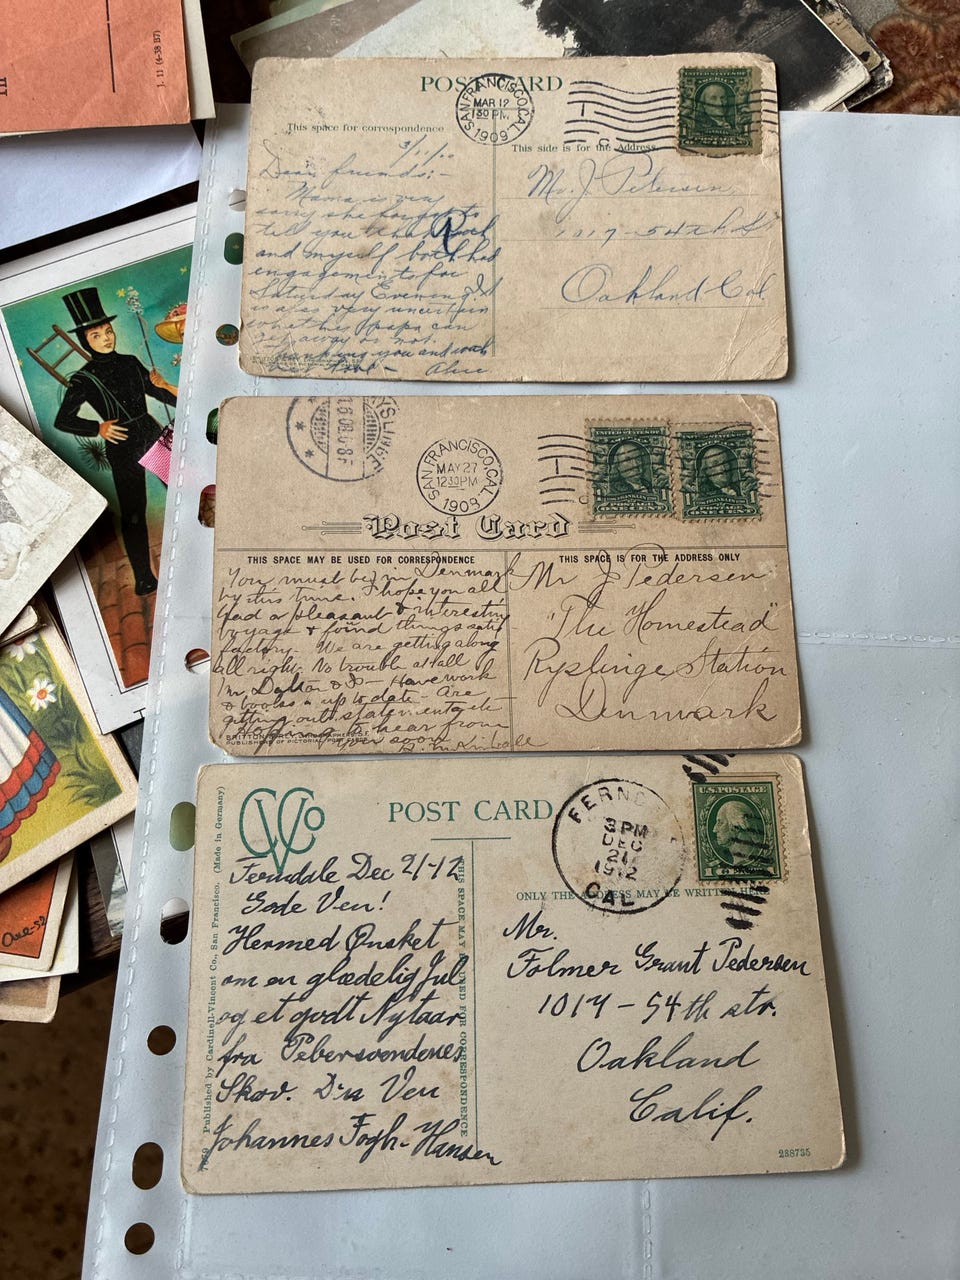 J. 11 (4-38 B7)
POST CARD
SAN FRANCISCO, CAL.
MAR 12
1909
UNITED STATES OF AMERICA
This space for correspondence
This side is for the Address
Dear friends:-
Mama is very
sorry she forgot to
tell you that
and myself both had
engagements for
Saturday Evening. It
is also very uncertain
whether papa can
get away or not.
Thanking you and with
Alice
Mr. J. Petersen
1017-54th St
Oakland Cal.
SAN FRANCISCO, CAL.
MAY 27
1230 PM
1909
ONE CENT
ONE CENT
Post Card
THIS SPACE MAY BE USED FOR CORRESPONDENCE
THIS SPACE IS FOR THE ADDRESS ONLY
You must be in Denmark
by this time. I hope you all
had a pleasant & interesting
voyage & found things satis
factory. We are getting along
all right. No trouble at all
Mr. Dalton & I - Have work
& books up to date - Are
getting out statements etc
Hoping to hear from
you soon
Mr J Pedersen
"The Homestead"
Ryslinge Station
Denmark
CVCo
POST CARD
FERND
3 PM
DEC
21
1912
CAL
U.S. POSTAGE
ONLY THE ADDRESS MAY BE WRITTEN HERE
THIS SPACE MAY BE USED FOR CORRESPONDENCE
Published by Cardinell-Vincent Co., San Francisco. (Made in Germany)
Ferndale Dec 21-12
Gode Ven!
Hermed Ønsket
om en glædelig Jul
og et godt Nytaar
fra Pebersvendenes
Skov. Din Ven
Johannes Fogh-Hansen
Mr.
Folmer Grant Pedersen
1017-54th str.
Oakland
Calif.
238735